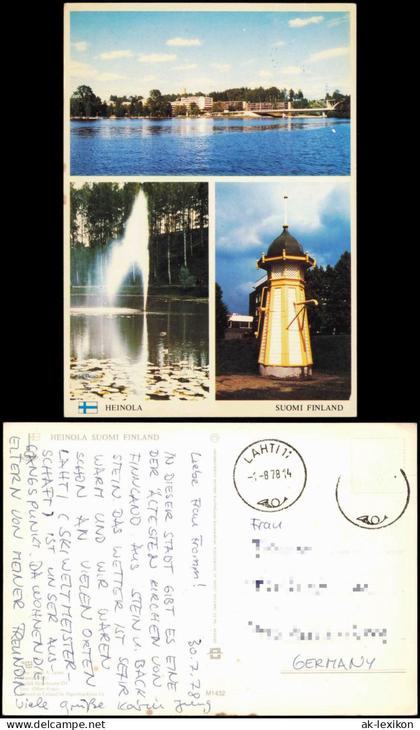 HEINOLA
SUOMI FINLAND
HEINOLA SUOMI FINLAND
LAHTI 1
-1-8 78 14
30.7.78
Liebe Frau Fromm!
IN DIESER STADT GIBT ES EINE
DER ÄLTESTEN KIRCHEN VON
FINNLAND. AUS STEIN U. BACK
STEIN DAS WETTER IST SEHR
WARM UND WIR WAREN
SCHON AN VIELEN ORTEN
LAHTI (SKIWELTMEISTER
SCHAFT) IST UNSER AUS-
GANGSPUNKT. DA WOHNEN DIE
ELTERN VON MEINER FREUNDIN
Viele Grüße Karin Jung
M1432
Frau
GERMANY
© ak-lexikon.com